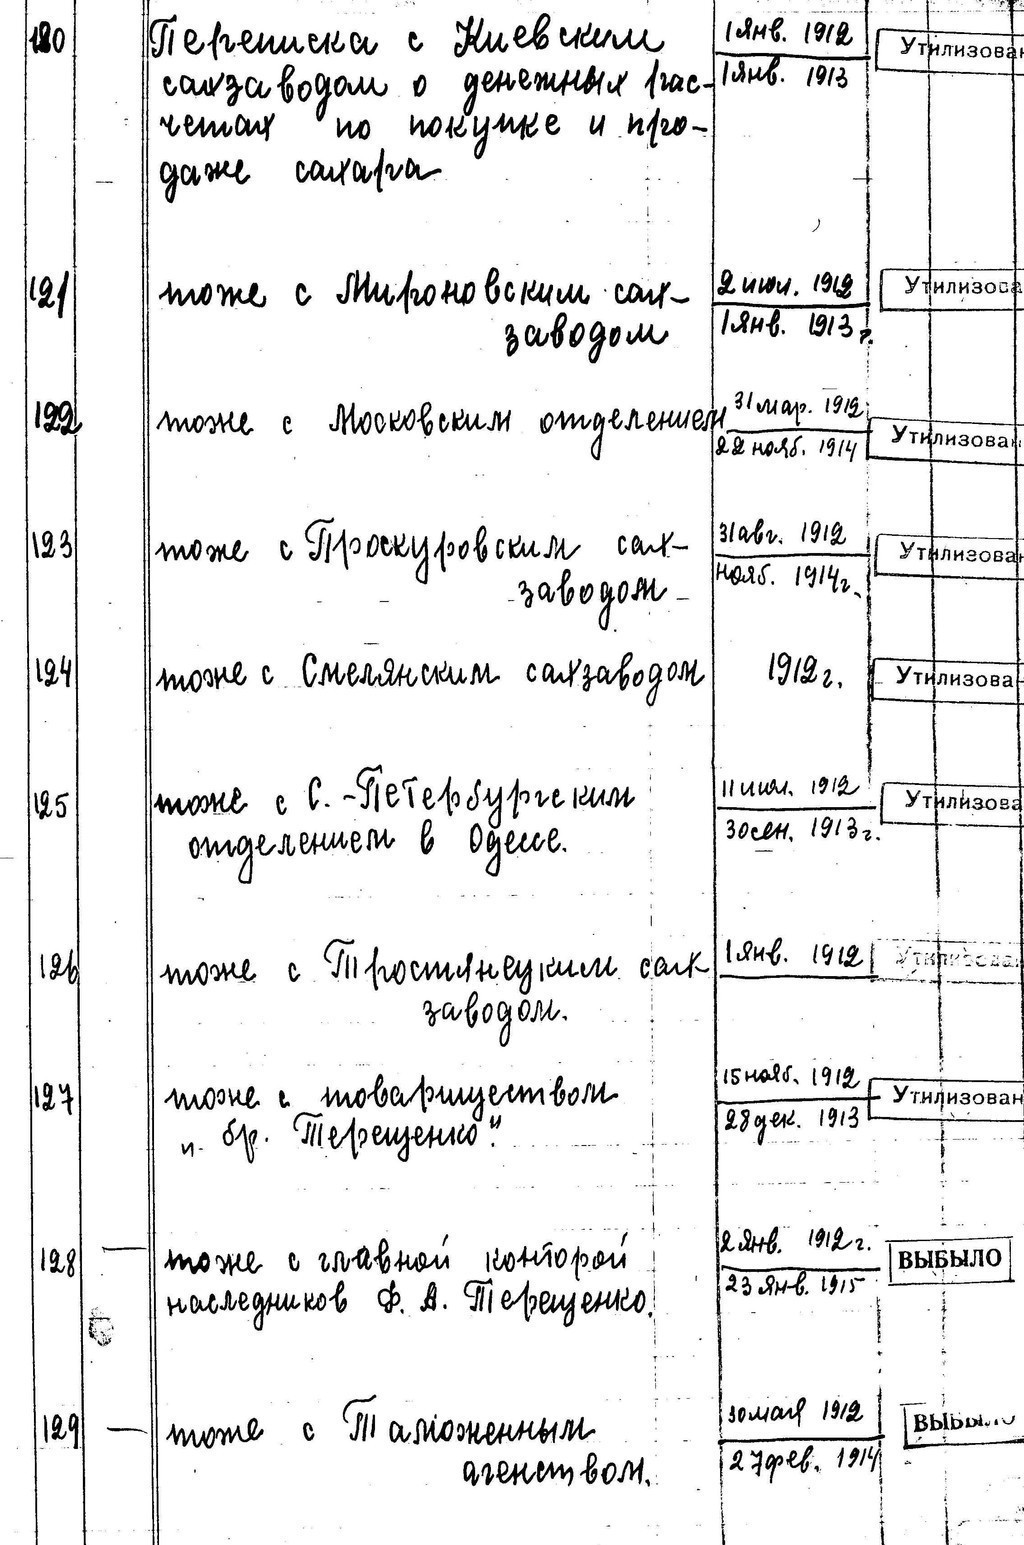 120 Переписка с Киевским 1 янв. 1912 Утилизован
сахзаводом о денежных рас- 1 янв. 1913
четах по покупке и про-
даже сахара
121 тоже с Мироновским сах- 2 июл. 1912 Утилизова
заводом 1 янв. 1913 г.
122 тоже с Московским отделением 31 мар. 1912 Утилизован
22 нояб. 1914
123 тоже с Проскуровским сах- 31 авг. 1912 Утилизован
заводом 1914 г.
нояб.
124 тоже с Смелянским сахзаводом 1912 г. Утилизова
125 тоже с С.-Петербургским 1912 Утилизова
отделением в Одессе. 30 сен. 1913 г.
126 тоже с Тростянецким сах 1 янв. 1912 Утилизован
заводом.
127 тоже с товариществом 15 нояб. 1912 Утилизован
"бр. Терещенко". 28 дек. 1913
128 — тоже с главной конторой 2 янв. 1912 г. ВЫБЫЛО
наследников Ф. А. Терещенко. 23 янв. 1915
129 — тоже с Таможенным 30 мая 1912 ВЫБЫЛО
агенством. 27 фев. 1914